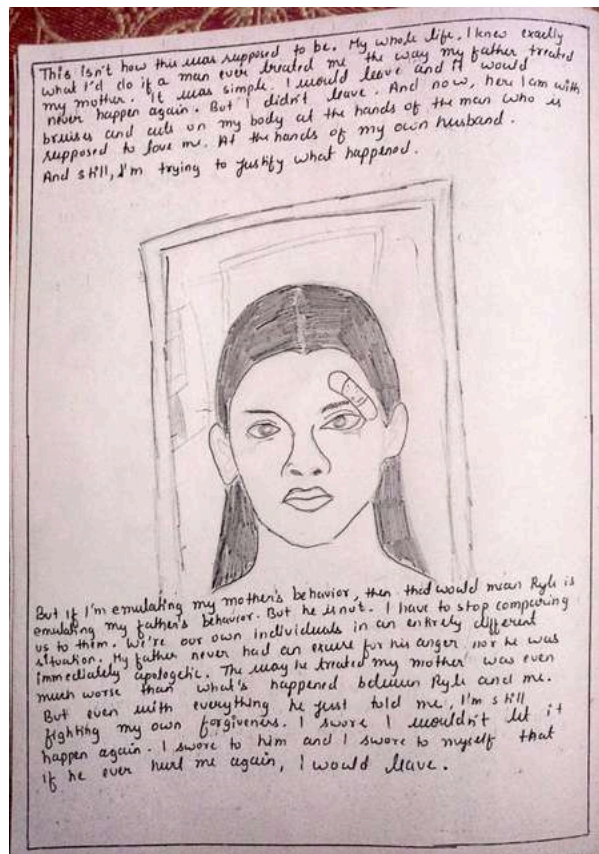 This isn't how this was supposed to be. My whole life, I knew exactly
what I'd do if a man ever treated me the way my father treated
my mother. It was simple. I would leave and it would
never happen again. But I didn't leave. And now, here I am with
bruises and cuts on my body at the hands of the man who is
supposed to love me. At the hands of my own husband.
And still, I'm trying to justify what happened.
But if I'm emulating my mother's behavior, then that would mean Ryle is
emulating my father's behavior. But he is not. I have to stop comparing
us to them. We're our own individuals in an entirely different
situation. My father never had an excuse for his anger, nor he was
immediately apologetic. The way he treated my mother was even
much worse than what's happened between Ryle and me.
But even with everything he just told me, I'm still
fighting my own forgiveness. I swore I wouldn't let it
happen again. I swore to him and I swore to myself that
if he ever hurt me again, I would leave.